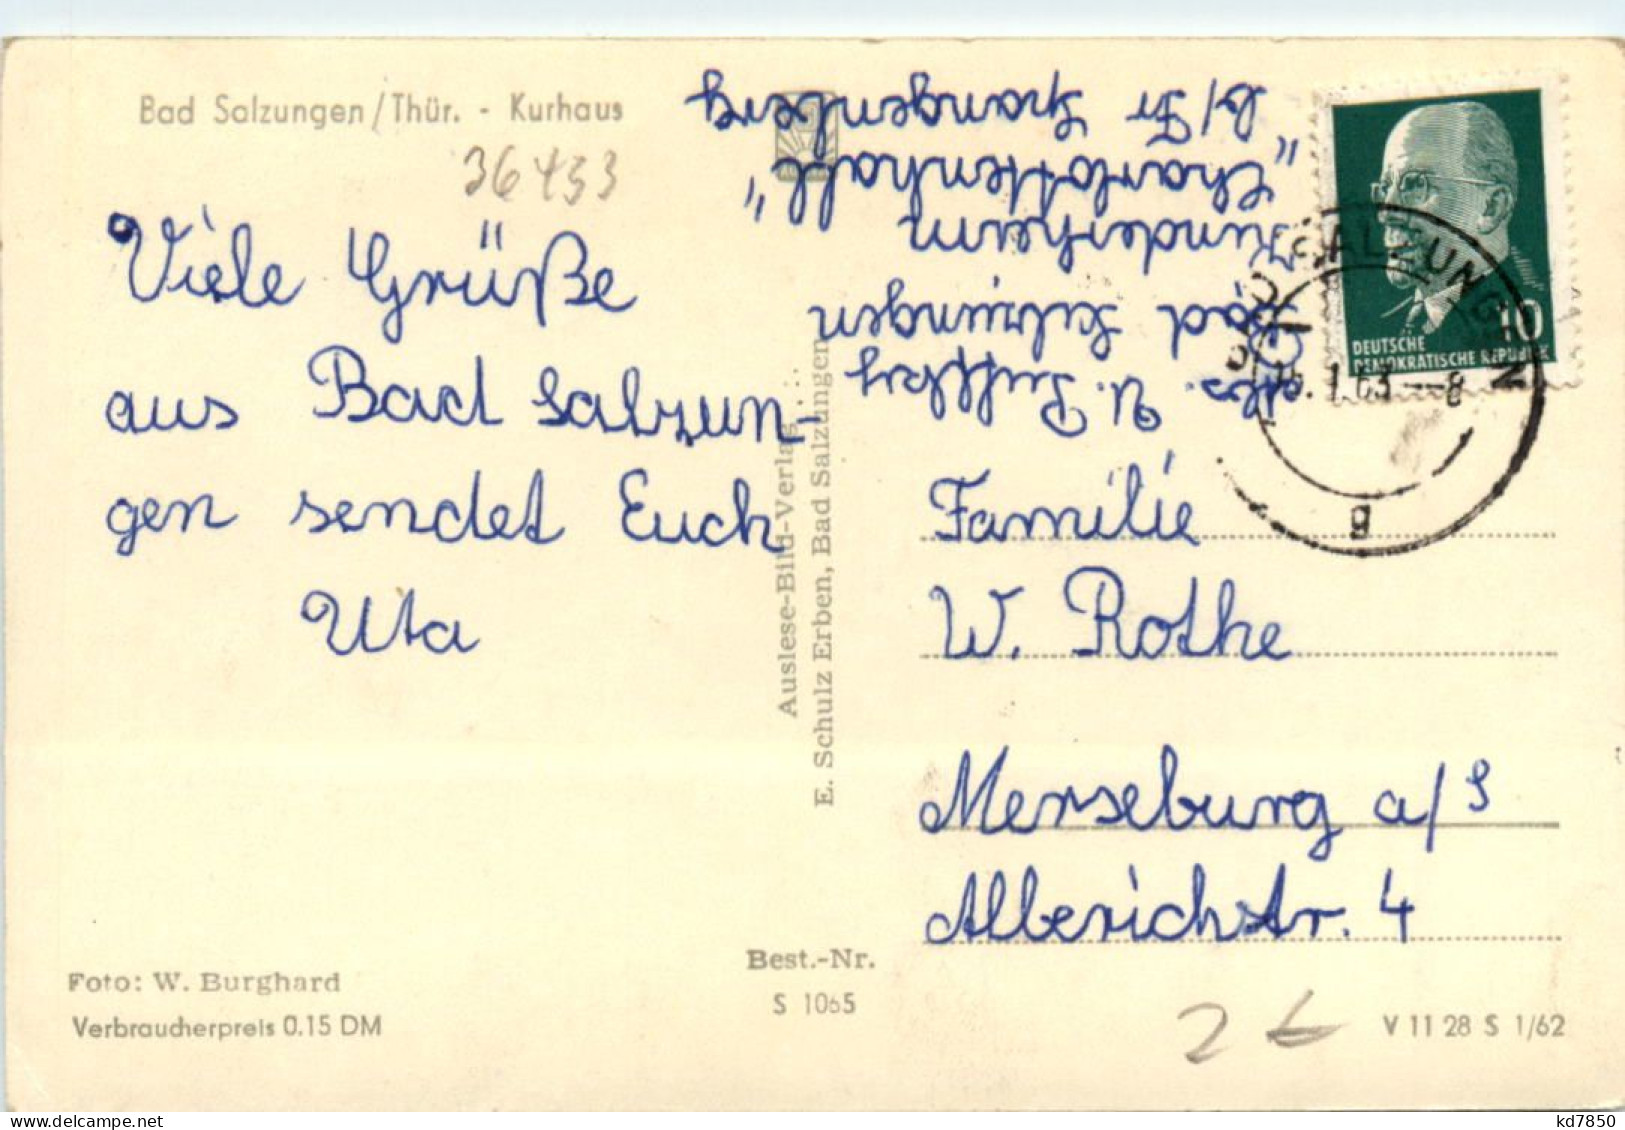 Bad Salzungen/Thür. - Kurhaus
36453
Viele Grüße
aus Bad Salzun-
gen sendet Euch
Uta
Foto: W. Burghard
Verbraucherpreis 0.15 DM
Auslese-Bild-Verlag
E. Schulz Erben, Bad Salzungen
Best.-Nr.
S 1065
Abs. U.
Bad Salzungen
Kinderheim
"Charlottenhall"
b/Fr Spangenberg
10
DEUTSCHE
DEMOKRATISCHE REPUBLIK
BAD SALZUNGEN
1.63—8
g
Familie
W. Rothe
Merseburg a/S
Alberichstr. 4
26
V 11 28 S 1/62
kd7850
www.delcampe.net